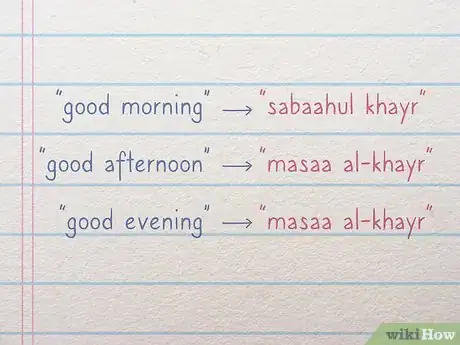 "good morning" → "sabaahul khayr"
"good afternoon" → "masaa al-khayr"
"good evening" → "masaa al-khayr"
wikiHow